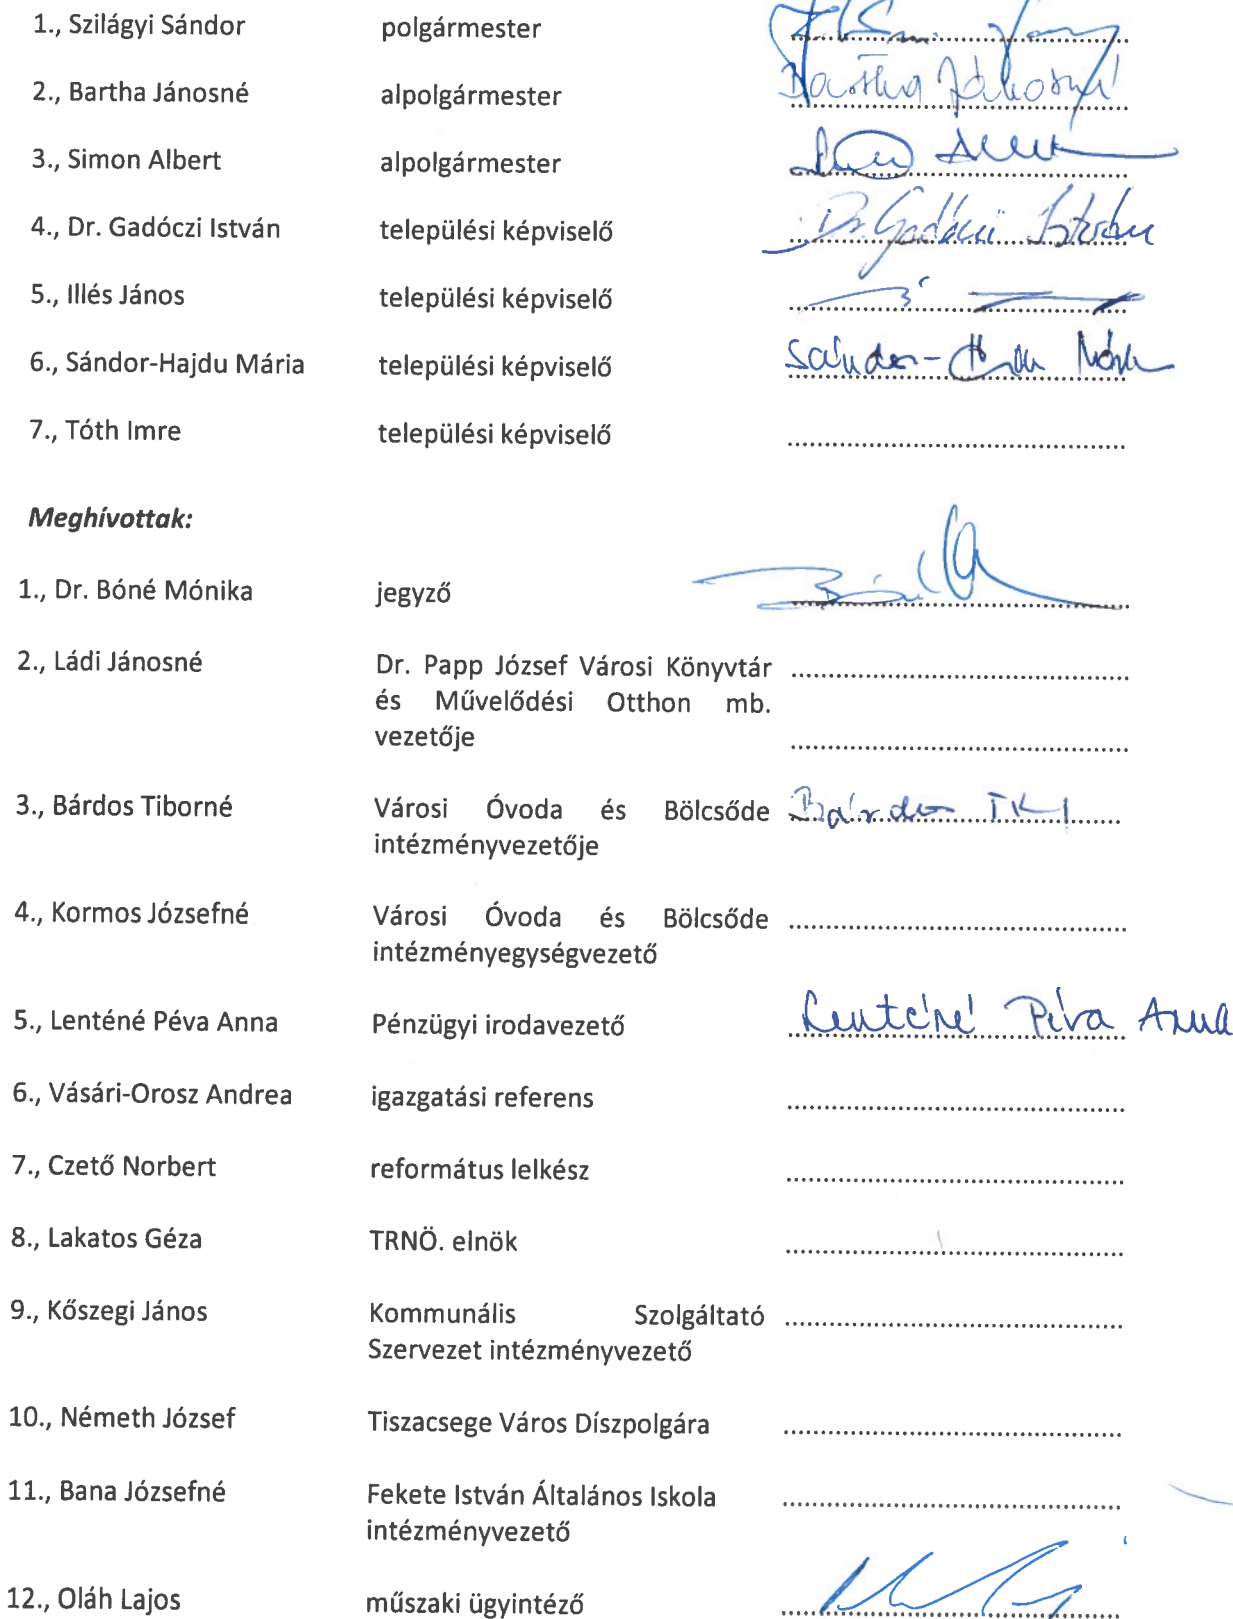 1., Szilágyi Sándor polgármester
2., Bartha Jánosné alpolgármester Bartha Jánosné
3., Simon Albert alpolgármester
4., Dr. Gadóczi István települési képviselő Dr. Gadóczi István
5., Illés János települési képviselő
6., Sándor-Hajdu Mária települési képviselő Sándor-
7., Tóth Imre települési képviselő
Meghívottak:
1., Dr. Bóné Mónika jegyző
2., Ládi Jánosné Dr. Papp József Városi Könyvtár
és Művelődési Otthon mb.
vezetője
3., Bárdos Tiborné Városi Óvoda és Bölcsőde Bárdos
intézményvezetője
4., Kormos Józsefné Városi Óvoda és Bölcsőde
intézményegységvezető
5., Lenténé Péva Anna Pénzügyi irodavezető Lenténé Péva Anna
6., Vásári-Orosz Andrea igazgatási referens
7., Czető Norbert református lelkész
8., Lakatos Géza TRNÖ. elnök
9., Kőszegi János Kommunális Szolgáltató
Szervezet intézményvezető
10., Németh József Tiszacsege Város Díszpolgára
11., Bana Józsefné Fekete István Általános Iskola
intézményvezető
12., Oláh Lajos műszaki ügyintéző